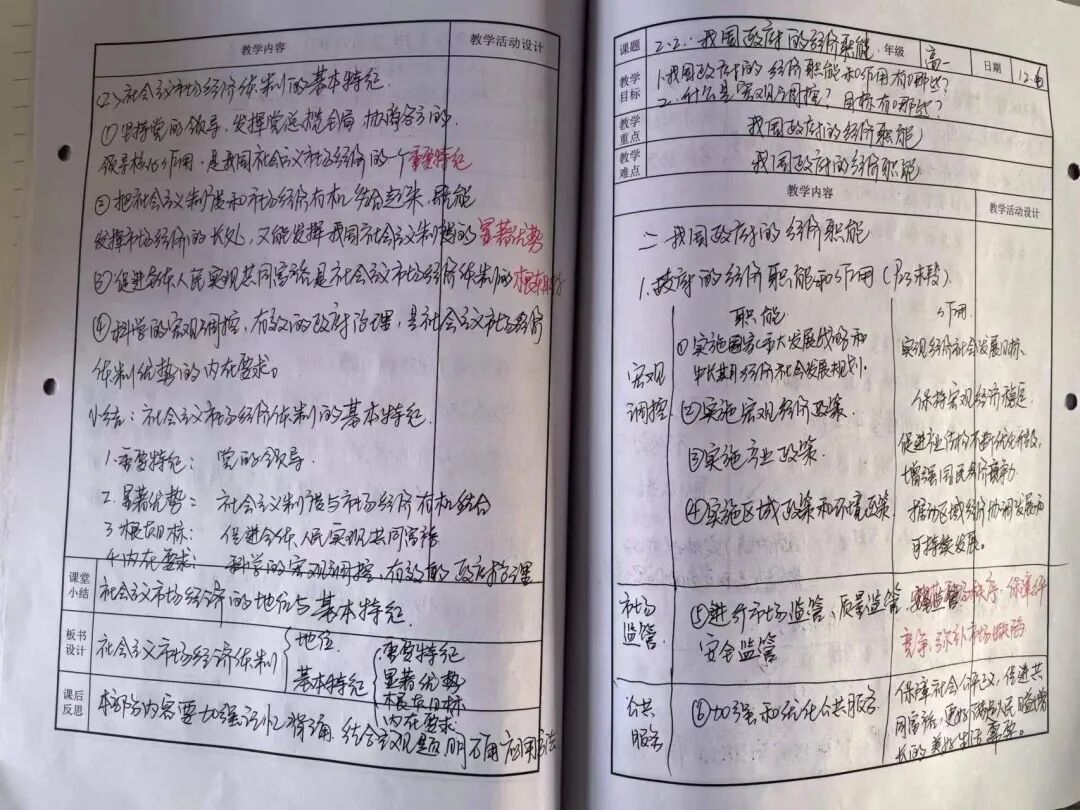 教学内容 教学活动设计
(2)社会主义市场经济体制的基本特征
①坚持党的领导，发挥党总揽全局 协调各方的
领导核心作用，是我国社会主义市场经济的一个重要特征
②把社会主义制度和市场经济有机结合起来，既能
发挥市场经济的长处，又能发挥我国社会主义制度的显著优势
③促进全体人民实现共同富裕是社会主义市场经济体制的根本目标
④科学的宏观调控，有效的政府治理，是社会主义市场经济
体制优势的内在要求。
小结：社会主义市场经济体制的基本特征
1.重要特征：党的领导.
2.显著优势：社会主义制度与市场经济有机结合
3.根本目标：促进全体人民实现共同富裕
4.内在要求：科学的宏观调控，有效的政府治理
课堂小结 社会主义市场经济的地位与基本特征.
板书设计 社会主义市场经济体制 地位
基本特征 重要特征
显著优势
根本目标
内在要求
课后反思 本部分内容要加强记忆背诵 结合主观题
课题 2.2.我国政府的经济职能 年级 高一 日期
教学目标 1.我国政府的经济职能和作用有哪些?
2.什么是宏观调控? 目标有哪些?
教学重点 我国政府的经济职能
教学难点 我国政府的经济职能
教学内容 教学活动设计
二 我国政府的经济职能
1.政府的经济职能和作用
职能 作用
宏观调控 ①实施国家重大发展战略和中长期经济社会发展规划. 实现经济社会发展目标、
②实施宏观经济政策 保持宏观经济稳定
③实施产业政策. 促进产业结构不断优化升级，增强国民经济竞争力
④实施区域政策和环境政策 推动区域经济协调发展和可持续发展。
市场监管 ⑤进行市场监管、质量监管、安全监管 市场秩序，保障公平竞争，弥补市场缺陷
公共服务 ⑥加强和优化公共服务 保障社会公平正义，促进共同富裕，更好满足人民日益增长的美好生活需要。